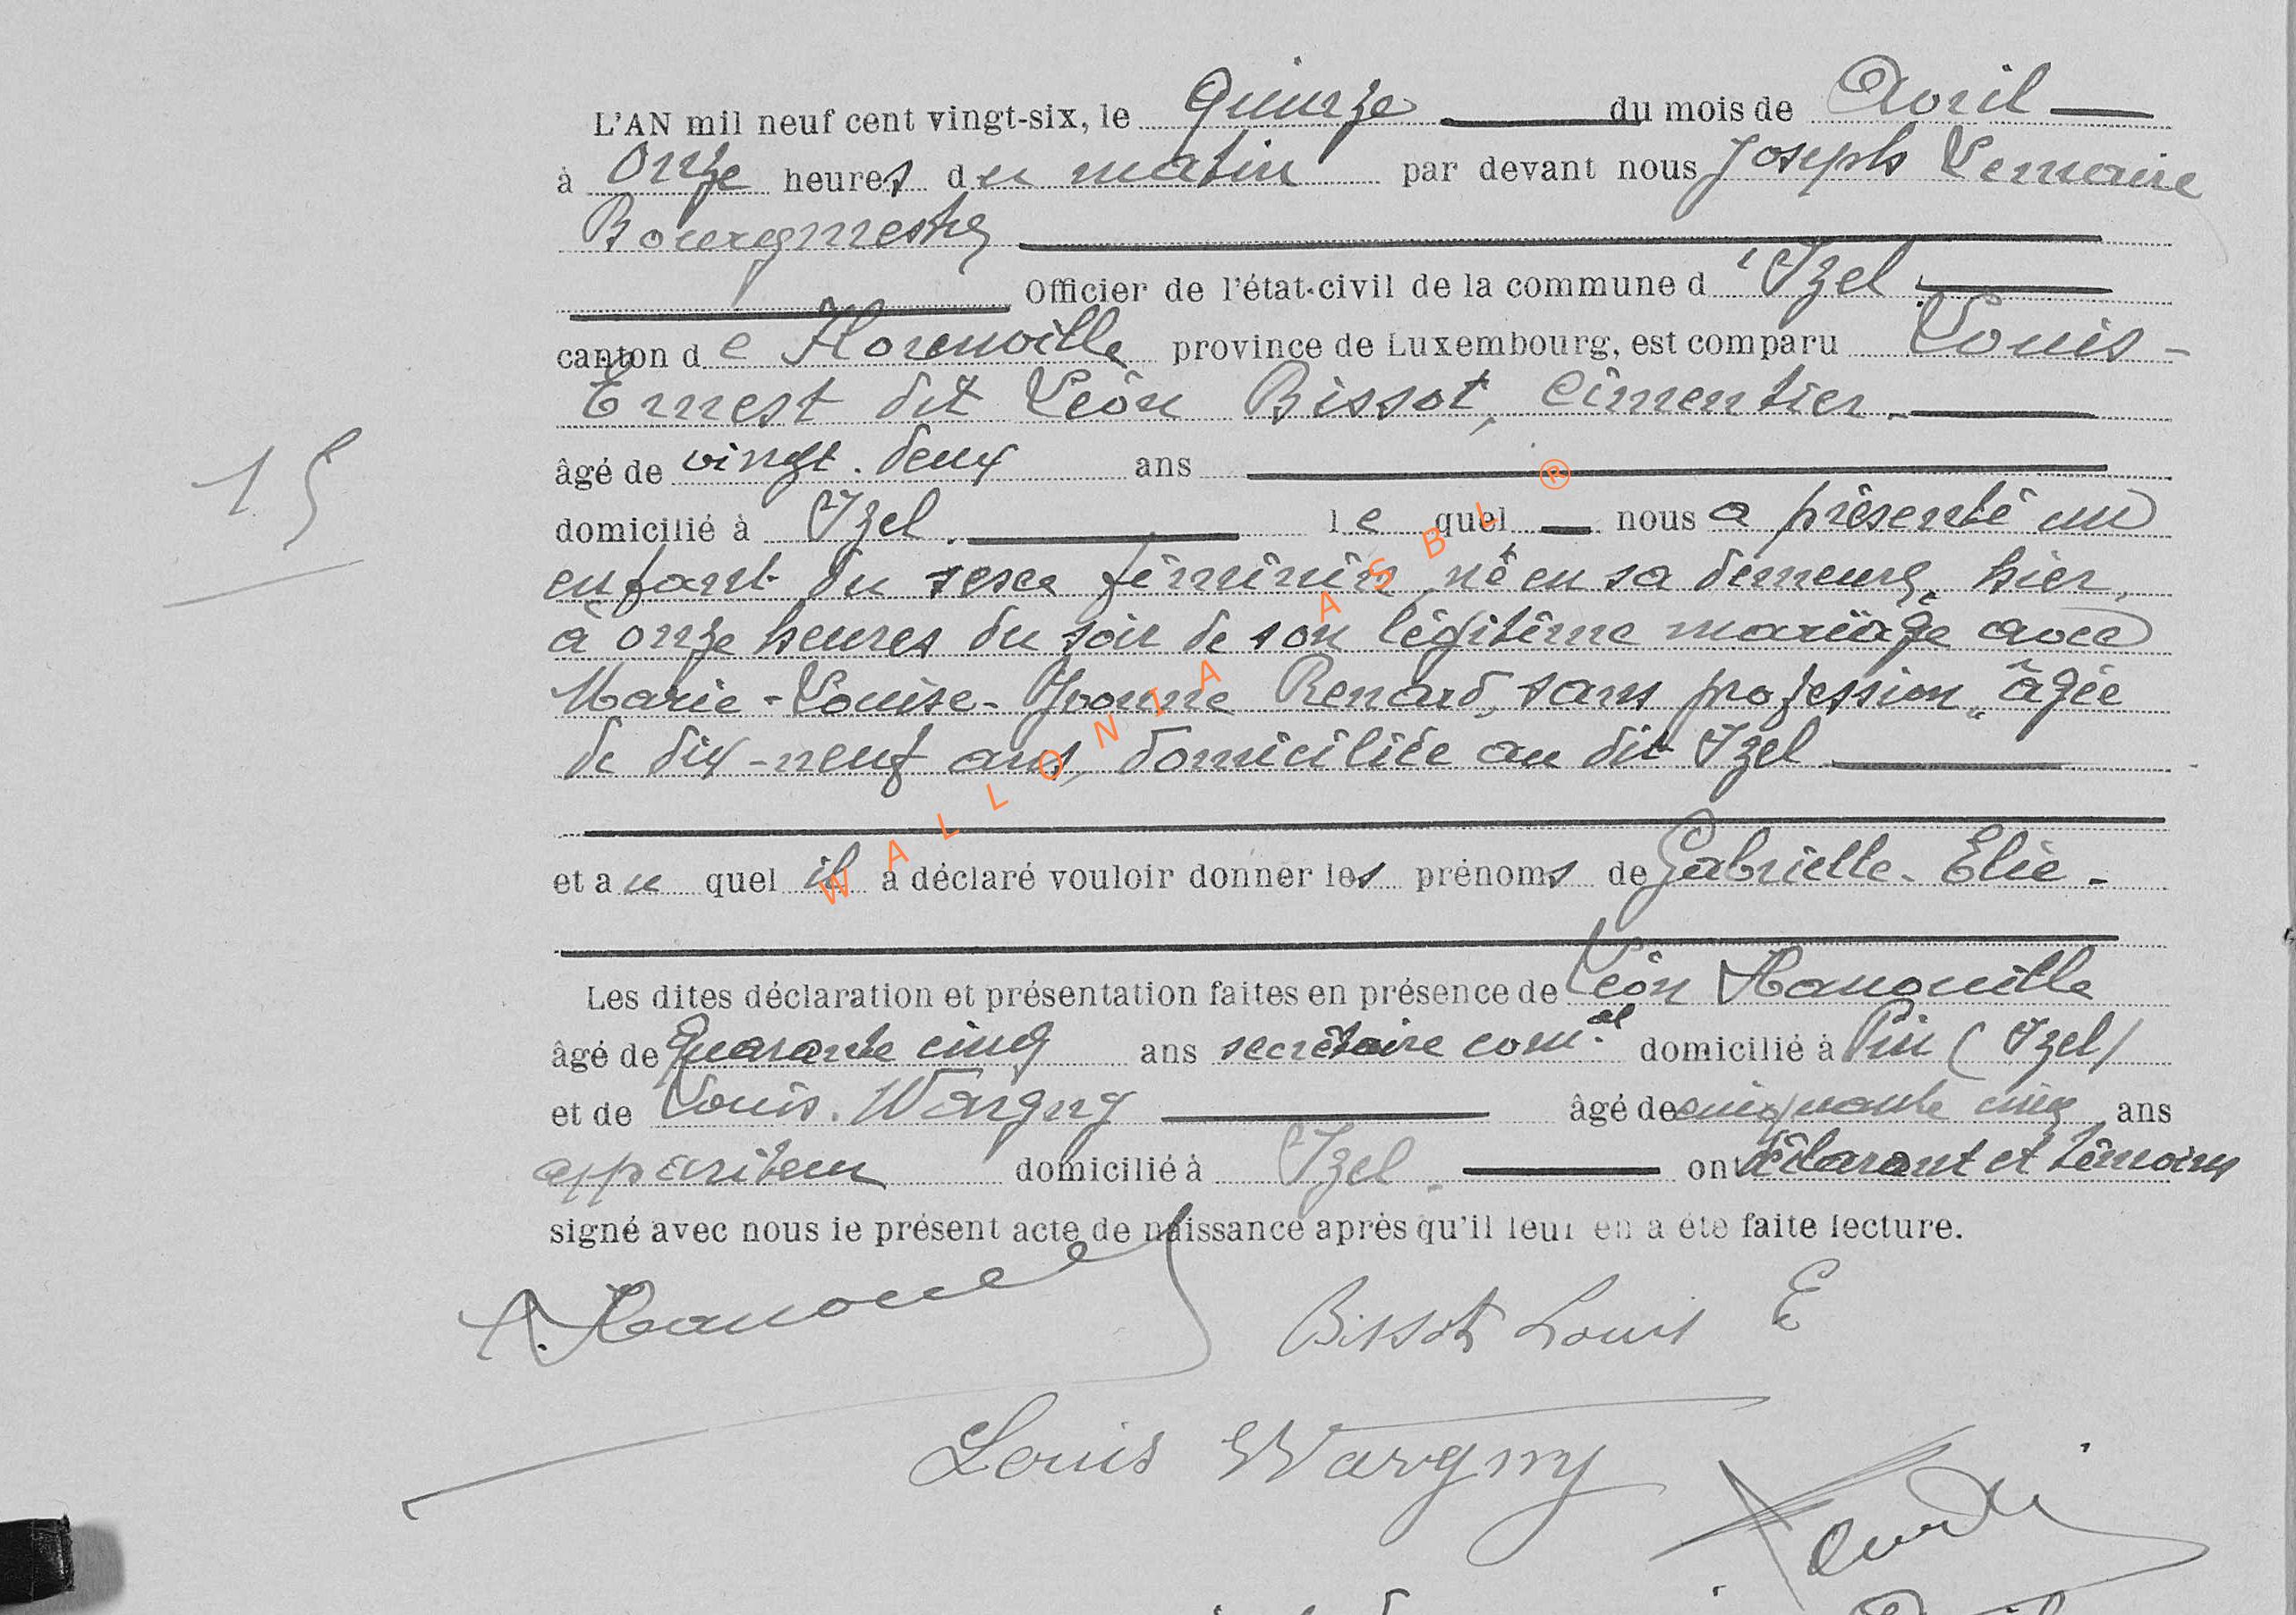 L'AN mil neuf cent vingt-six, le Quinze du mois de Avril
à Onze heures du matin par devant nous Joseph Lemaire
Bourgmestre
Officier de l'état-civil de la commune d'Izel
canton de Florenville province de Luxembourg, est comparu Louis-
Ernest dit Léon Bissot, cimentier
âgé de vingt-deux ans
15
domicilié à Izel. lequel nous a présenté un
enfant du sexe féminin, né en sa demeure, hier,
à onze heures du soir de son légitime mariage avec
Marie-Louise-Yvonne Renard, sans profession, âgée
de dix-neuf ans, domiciliée au dit Izel
et auquel il a déclaré vouloir donner les prénoms de Gabrielle-Elie-
Les dites déclaration et présentation faites en présence de Léon Hanouille
âgé de Quarante cinq ans secrétaire com.al domicilié à Pin (Izel)
et de Louis Wargny âgé de cinquante cinq ans
appariteur domicilié à Izel. ont déclarant et témoins
signé avec nous le présent acte de naissance après qu'il leur en a été faite lecture.
Bissot Louis E
Louis Wargny
WALLONIA ASBL ®